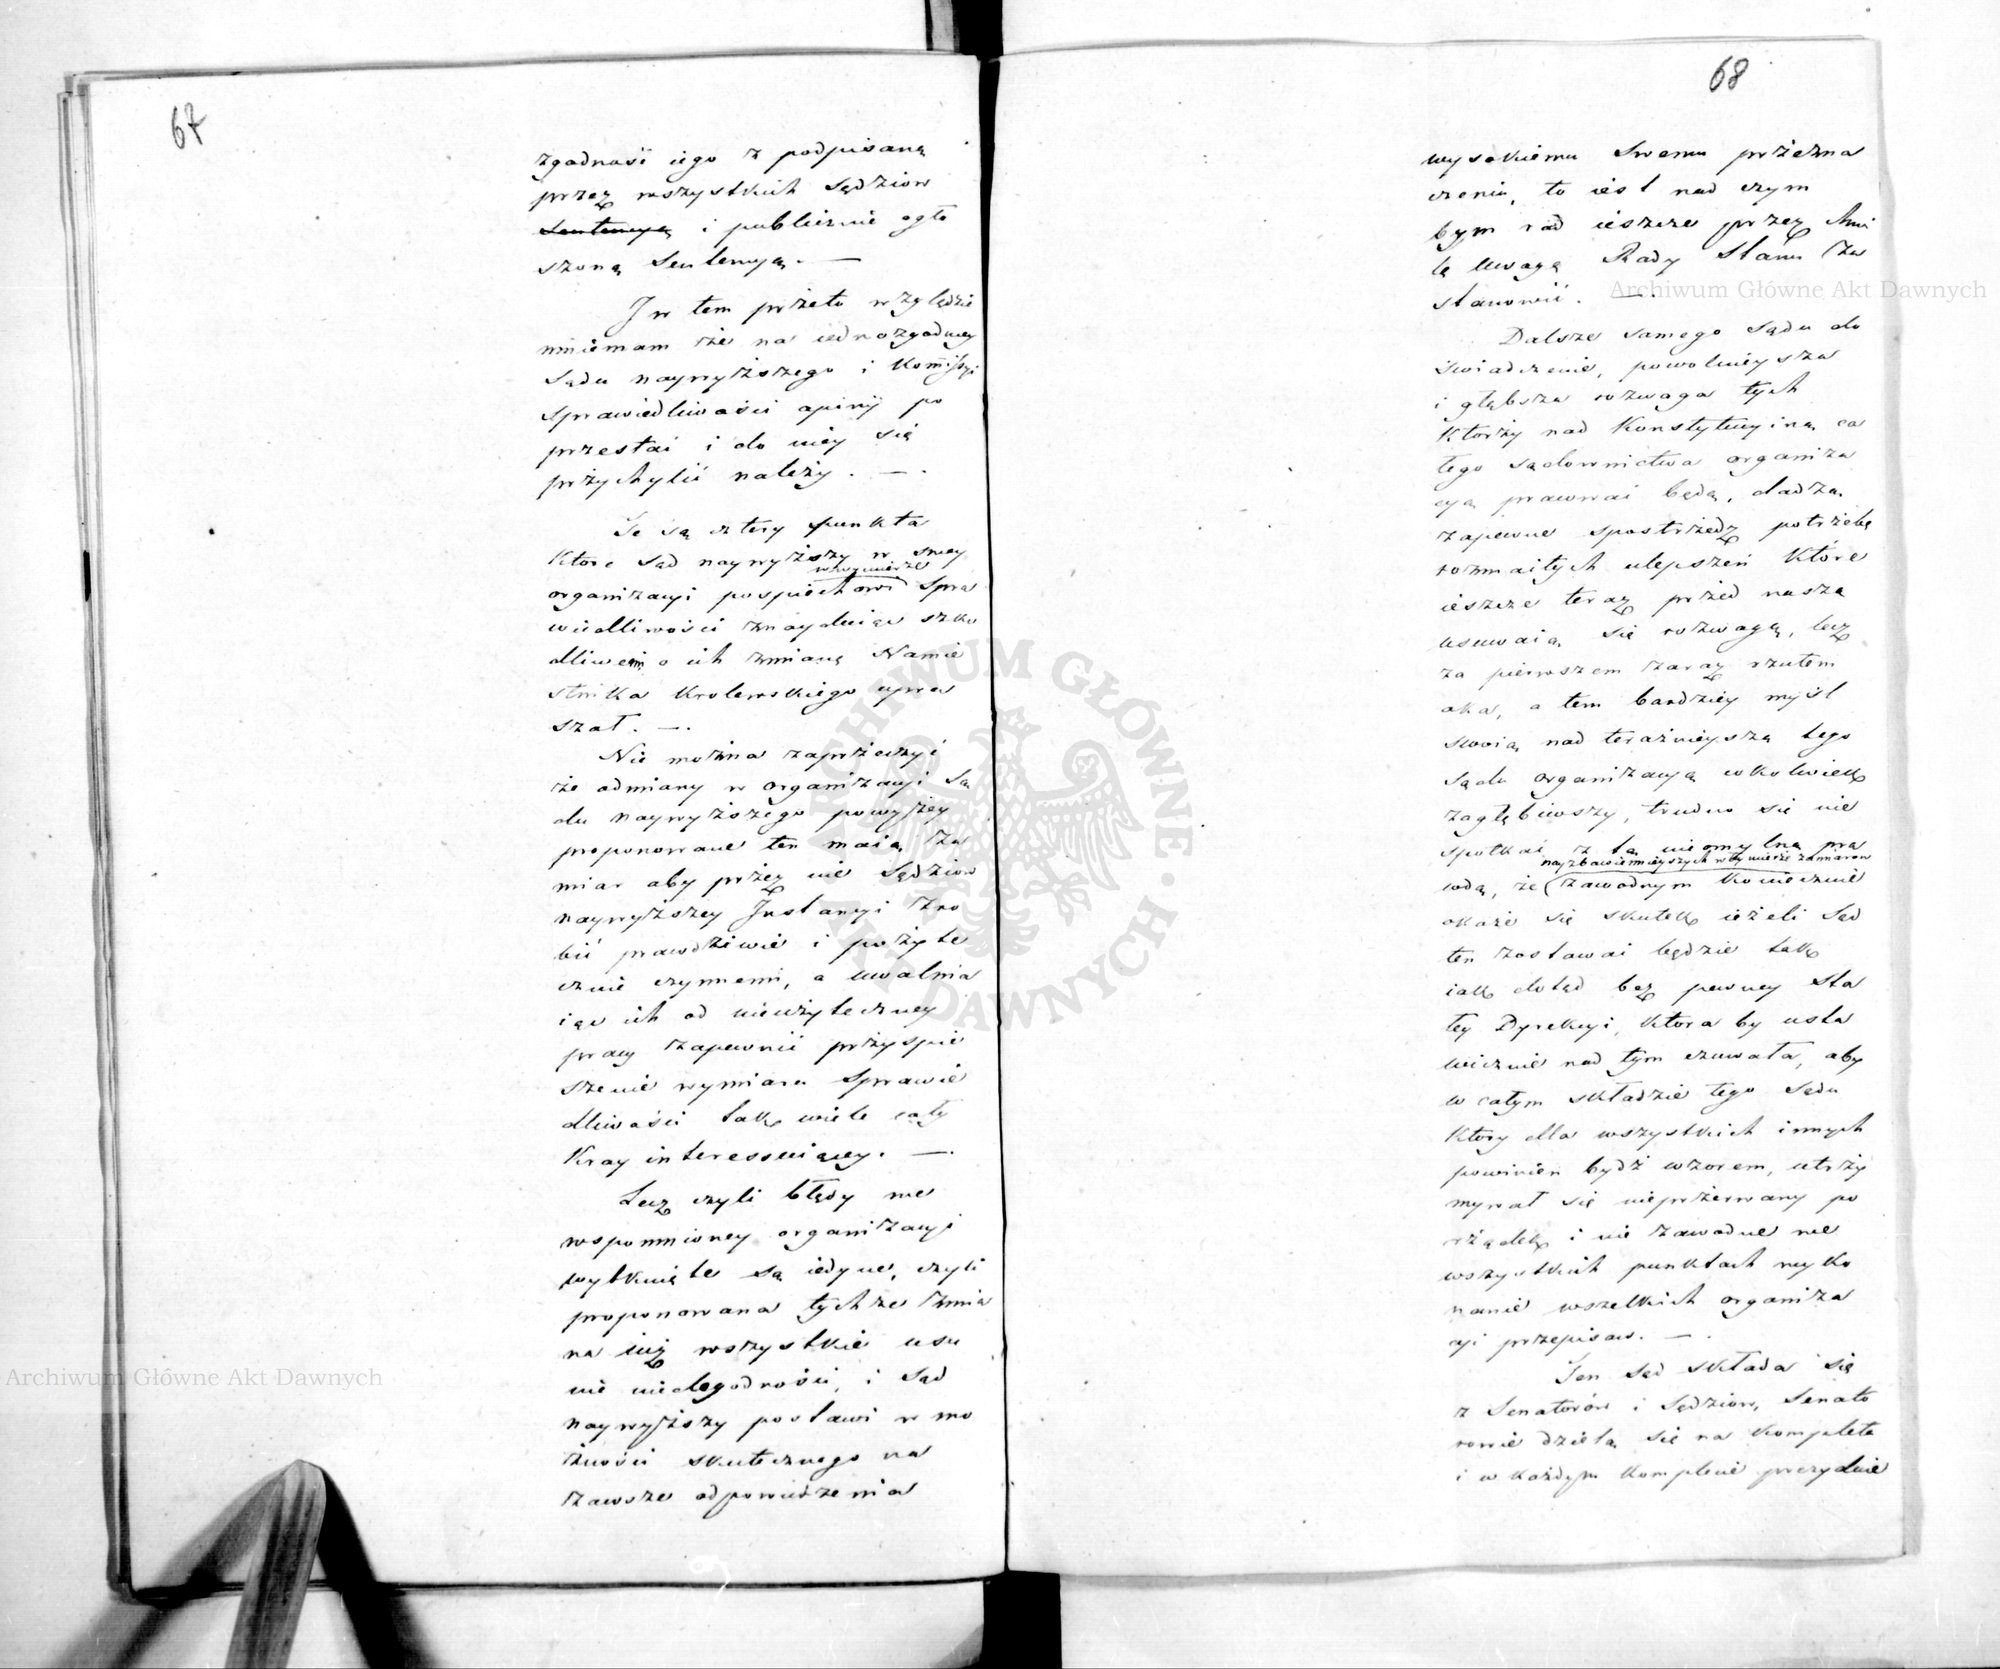 67
zgodność iego z podpisaną
przez wszystkich Sędziow
Sentencyą i publicznie ogło
szoną Sentencyą. —
I w tem przeto względzie
mniemam że na iednozgodney
Sądu naywyższego i Kommissyi
Sprawiedliwości opinij po
przestać i do niey się
przychylić należy. — .
Te są cztery punkta
Ktore Sąd naywyższy w swey
w wymierze
organizacyi pospiechowi Spra
wiedliwości znayduiąc szko
dliwemi o ich zmianę Namie
stnika Krolewskiego upra
szał. — .
Nie można zaprzeczyć
że odmiany w organizacyi Są
du naywyższego powyżey
proponowane ten maią za
miar aby przez nie Sędziow
naywyższey Instancyi zro
bić prawdziwie i pożyte
cznie czynnemi, a uwalnia
iąc ich od nieużyteczney
pracy zapewnić przyspie
szenie wymiaru Sprawie
dliwości tak wiele cały
Kray interessuiącey. — .
Lecz czyli błędy we
wspomnioney organizacyi
wytknięte są iedyne, czyli
proponowana tychże zmia
na iuż wszystkie usu
nie niedogodności, i Sąd
naywyższy postawi w mo
żności skutecznego na
zawsze odpowiedzenia
68
wysokiemu Swemu przezna
czeniu, to iest nad czym
bym rad ieszcze przez chwi
lę uwagę Rady Stanu za
stanowić. — .
Dalsze samego Sądu do
świadczenie, powolnieysza
i głębsza rozwaga tych
Ktorzy nad Konstytucyiną ca
łego sądownictwa organiza
cyą pracować będą, dadzą
zapewne spostrzedz potrzebę
rozmaitych ulepszeń Które
ieszcze teraz przed naszą
usuwaią się rozwagą, lecz
za pierwszem zaraz rzutem
oka, a tem bardziey myśl
swoią nad teraźnieyszą tego
Sądu organizacyą cokolwiek
zagłębiwszy, trudno się nie
spotkać z tą nieomylną pra
nayzbawiennieyszych w wymierze zamiarow
wdą, że zawodnym koniecznie
okaże się skutek ieżeli Sąd
ten zostawać będzie tak
iak dotąd bez pewney sta
łey Dyrekcyi, Ktora by usta
wicznie nad tym czuwała, aby
w całym składzie tego Sądu
Ktory dla wszystkich innych
powinien bydź wzorem, utrzy
mywał się nieprzerwany po
rządek i nie zawodne we
wszystkich punktach wyko
nanie wszelkich organiza
cyi przepisow. — .
Ten Sąd składa się
z Senatorów i Sędziow, Senato
rowie dzielą się na Komplety
i w każdym Komplecie prezyduie
Archiwum Główne Akt Dawnych
Archiwum Główne Akt Dawnych
ARCHIWUM GŁÓWNE AKT DAWNYCH